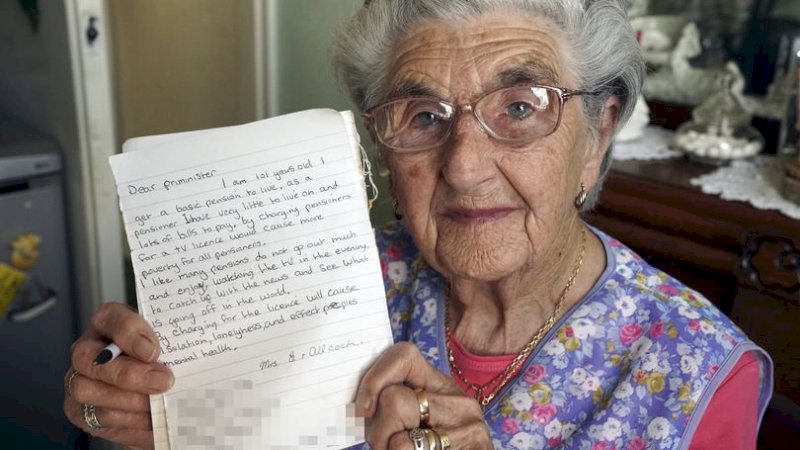 Dear priminister I am 101 years old I
get a basic pension to live, as a
pensioner I have very little to live on and
lots of bills to pay, by charging pensioners
for a tv licence would cause more
poverty for all pensioners.
I like many pensions do not go out much
and enjoy watching the tv in the evening,
to catch up with the news and see what
is going off in the world.
By charging for the licence will cause
isolation, lonelyness, and effect peoples
mental health.
Mrs E. Allcock.